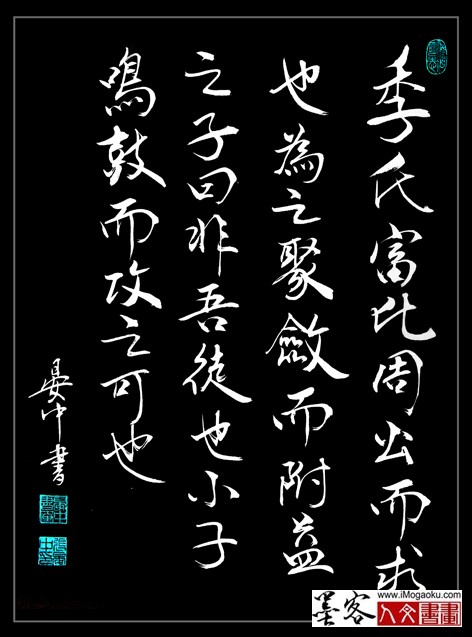 季氏富比周公而求
也為之聚斂而附益
之子曰非吾徒也小子
鳴鼓而攻之可也
晏中書
墨客
www.iMogaoku.com
人文書畫